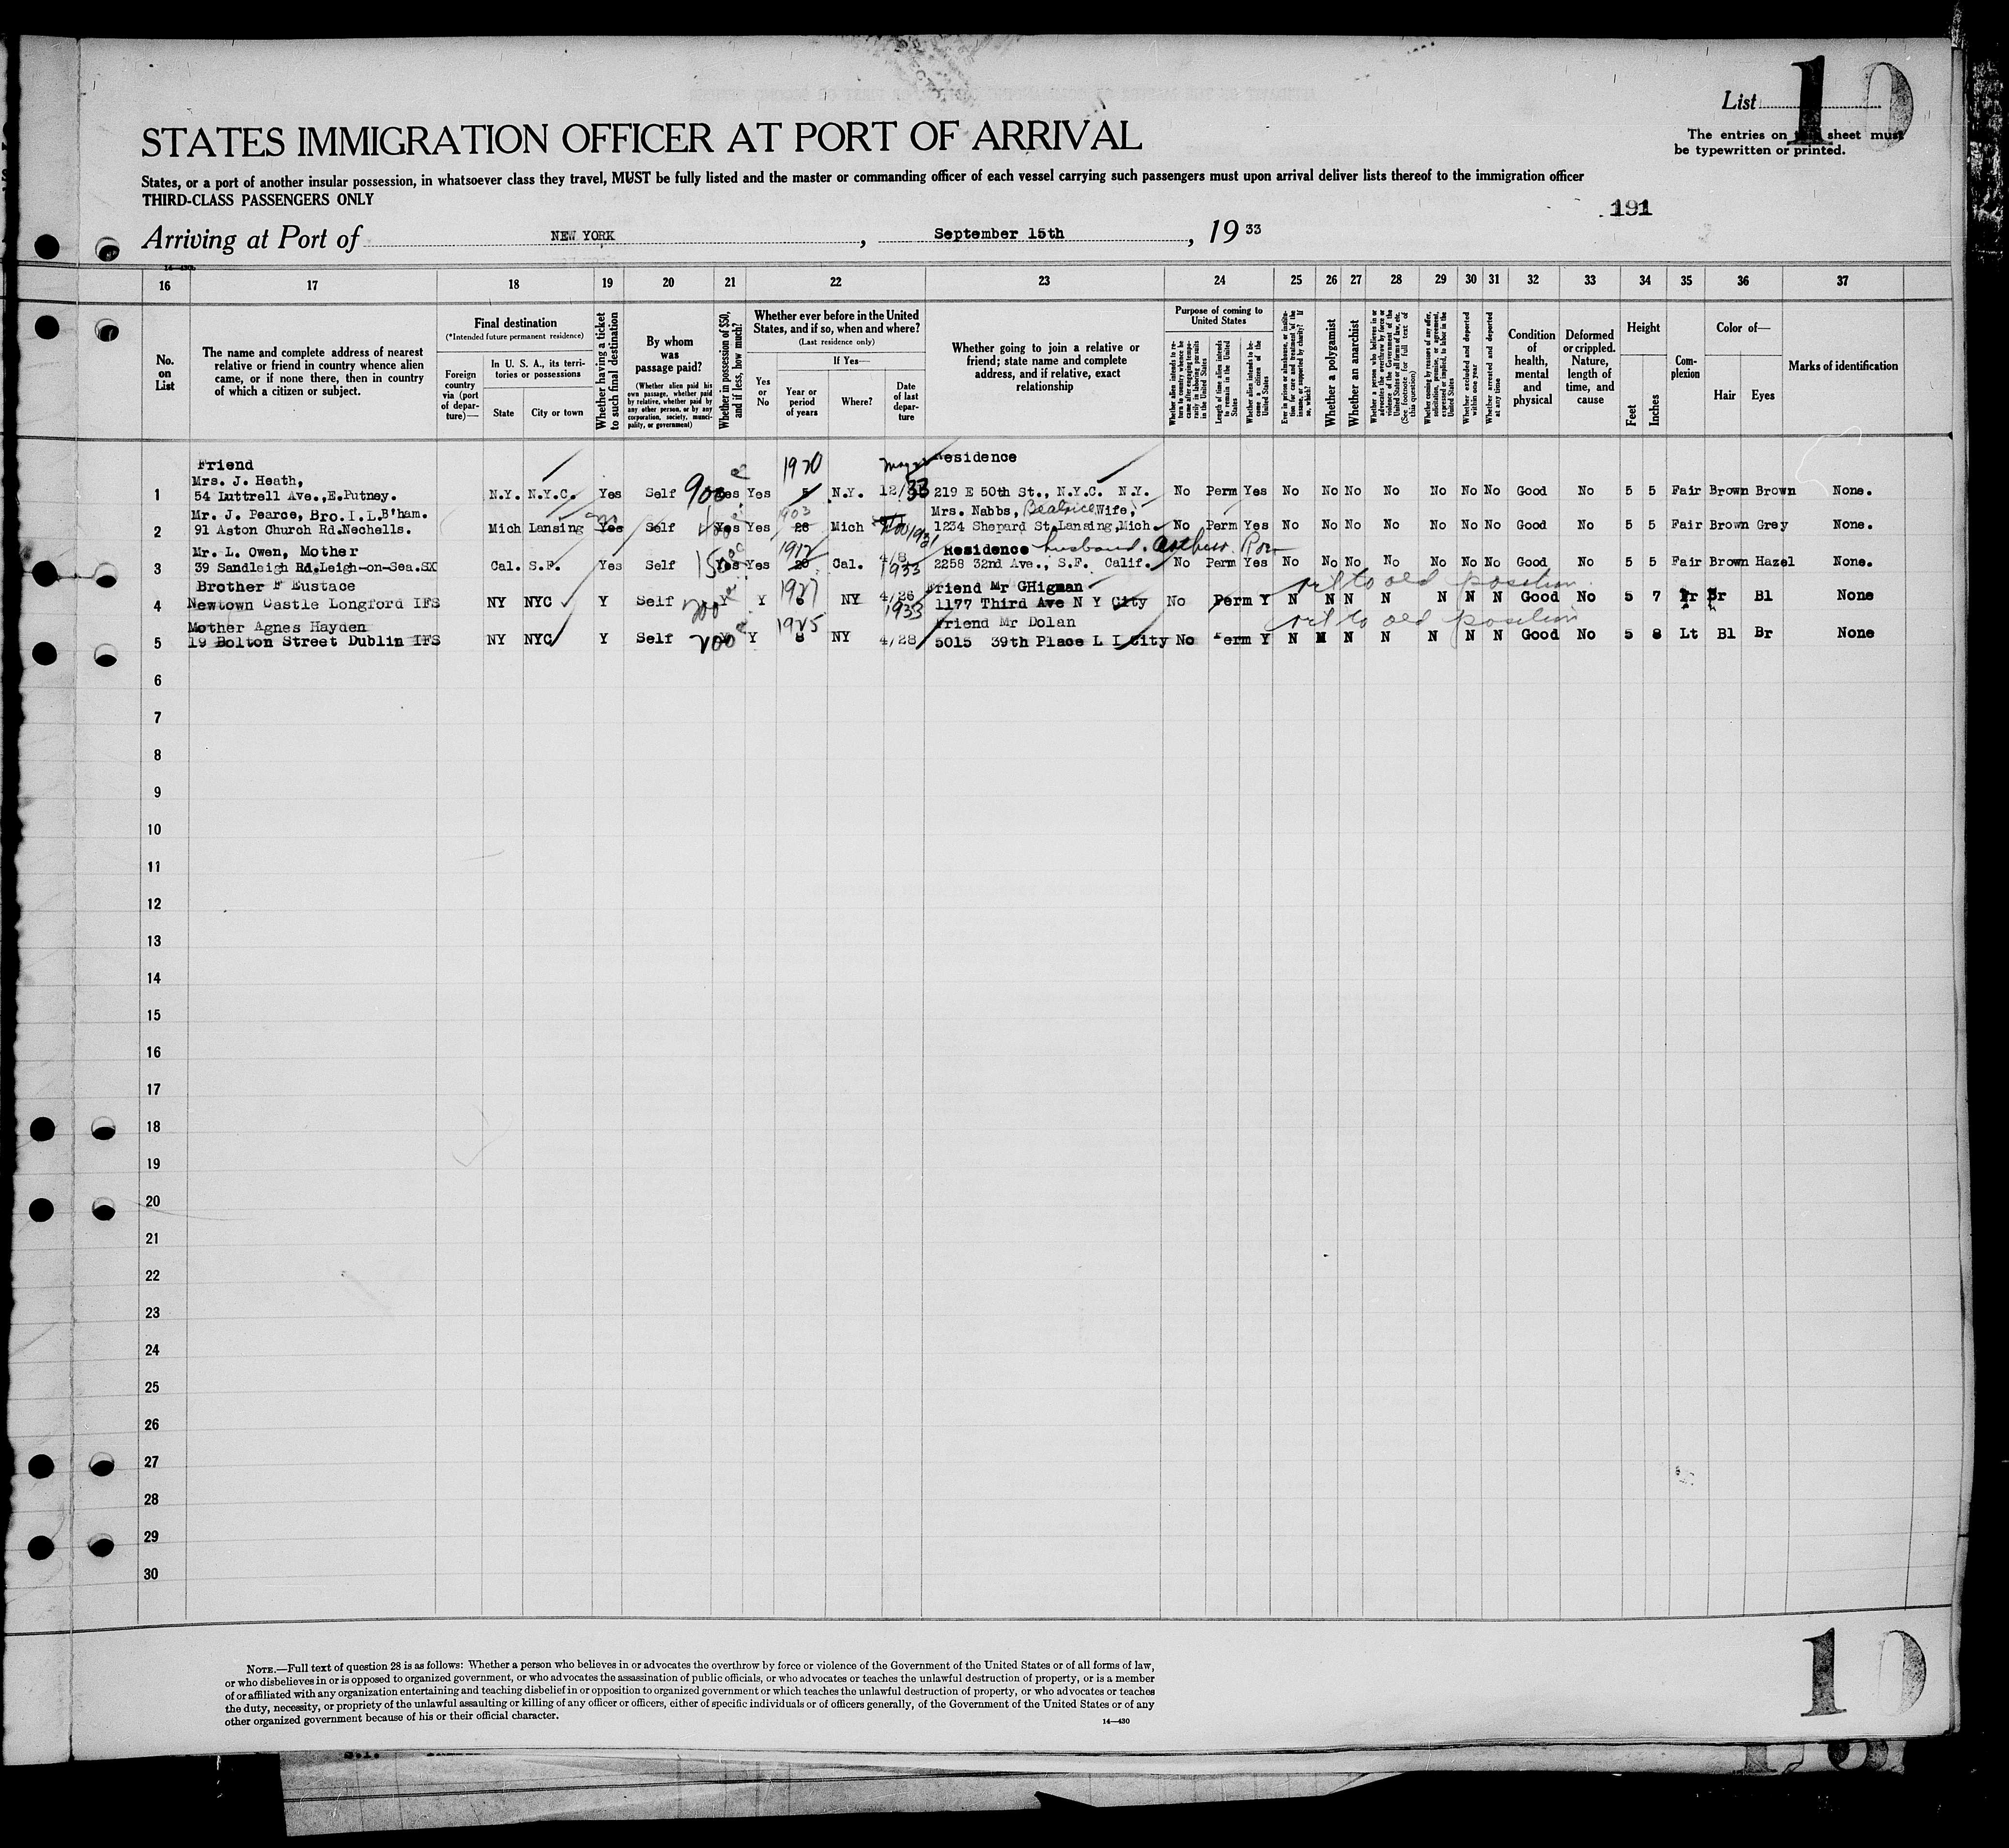 List 10
The entries on this sheet must
be typewritten or printed.
STATES IMMIGRATION OFFICER AT PORT OF ARRIVAL
States, or a port of another insular possession, in whatsoever class they travel, MUST be fully listed and the master or commanding officer of each vessel carrying such passengers must upon arrival deliver lists thereof to the immigration officer
THIRD-CLASS PASSENGERS ONLY
191
Arriving at Port of NEW YORK, September 15th, 19 33
14—430
16 17 18 19 20 21 22 23 24 25 26 27 28 29 30 31 32 33 34 35 36 37
No.
on
List
The name and complete address of nearest
relative or friend in country whence alien
came, or if none there, then in country
of which a citizen or subject.
Final destination
(*Intended future permanent residence)
Foreign
country
via (port
of depar-
ture)—
In U. S. A., its terri-
tories or possessions
State
City or town
Whether having a ticket
to such final destination
By whom
was
passage paid?
(Whether alien paid his
own passage, whether paid
by relative, whether paid by
any other person, or by any
corporation, society, munici-
pality, or government)
Whether in possession of $50,
and if less, how much?
Whether ever before in the United
States, and if so, when and where?
(Last residence only)
Yes
or
No
If Yes—
Year or
period
of years
Where?
Date
of last
depar-
ture
Whether going to join a relative or
friend; state name and complete
address, and if relative, exact
relationship
Purpose of coming to
United States
Whether alien intends to re-
turn to country whence he
came after engaging tempo-
rarily in laboring pursuits
in the United States
Length of time alien intends
to remain in the United
States
Whether alien intends to be-
come a citizen of the
United States
Ever in prison or almshouse, or institu-
tion for care and treatment of the
insane, or supported by charity? If
so, which?
Whether a polygamist
Whether an anarchist
Whether a person who believes in or
advocates the overthrow by force or
violence of the Government of the
United States or all forms of law, etc.
(See footnote for full text of
this question)
Whether coming by reasons of any offer,
solicitation, promise, or agreement,
expressed or implied, to labor in the
United States
Whether excluded and deported
within one year
Whether arrested and deported
at any time
Condition
of
health,
mental
and
physical
Deformed
or crippled.
Nature,
length of
time, and
cause
Height
Feet
Inches
Com-
plexion
Color of—
Hair
Eyes
Marks of identification
Friend 1920 Residence
Mrs. J. Heath,
1 54 Luttrell Ave.,E.Putney. N.Y. N.Y.C. Yes Self 900 Yes Yes 5 N.Y. 12/33 219 E 50th St., N.Y.C. N.Y. No Perm Yes No No No No No No No Good No 5 5 Fair Brown Brown None.
Mr. J. Pearce, Bro.I.L.B'ham. 1903 Mrs. Nabbs, Beatrice Wife,
2 91 Aston Church Rd.Nechells. Mich Lansing Yes Self 400 Yes Yes 28 Mich 1931 1234 Shepard St Lansing,Mich. No Perm Yes No No No No No No No Good No 5 5 Fair Brown Grey None.
Mr. L. Owen, Mother 1912 4/8 Residence husband. Arthur
3 39 Sandleigh Rd.Leigh-on-Sea.SX Cal. S.F. Yes Self 150 Yes Yes 20 Cal. 1933 2258 32nd Ave., S.F. Calif. No Perm Yes No No No No No No No Good No 5 5 Fair Brown Hazel None.
Brother F Eustace 1927 4/26 Friend Mr GHigman ret to old position
4 Newtown Castle Longford IFS NY NYC Y Self 200 Y Y 6 NY 1933 1177 Third Ave N Y City No Perm Y N N N N N N N Good No 5 7 Fr Br Bl None
Mother Agnes Hayden 1925 Friend Mr Dolan ret to old position
5 19 Bolton Street Dublin IFS NY NYC Y Self 200 Y Y 8 NY 4/28 5015 39th Place L I City No Perm Y N N N N N N N Good No 5 8 Lt Bl Br None
6
7
8
9
10
11
12
13
14
15
16
17
18
19
20
21
22
23
24
25
26
27
28
29
30
NOTE.—Full text of question 28 is as follows: Whether a person who believes in or advocates the overthrow by force or violence of the Government of the United States or of all forms of law,
or who disbelieves in or is opposed to organized government, or who advocates the assassination of public officials, or who advocates or teaches the unlawful destruction of property, or is a member
of or affiliated with any organization entertaining and teaching disbelief in or opposition to organized government or which teaches the unlawful destruction of property, or who advocates or teaches
the duty, necessity, or propriety of the unlawful assaulting or killing of any officer or officers, either of specific individuals or of officers generally, of the Government of the United States or of any
other organized government because of his or their official character.
14—430
10